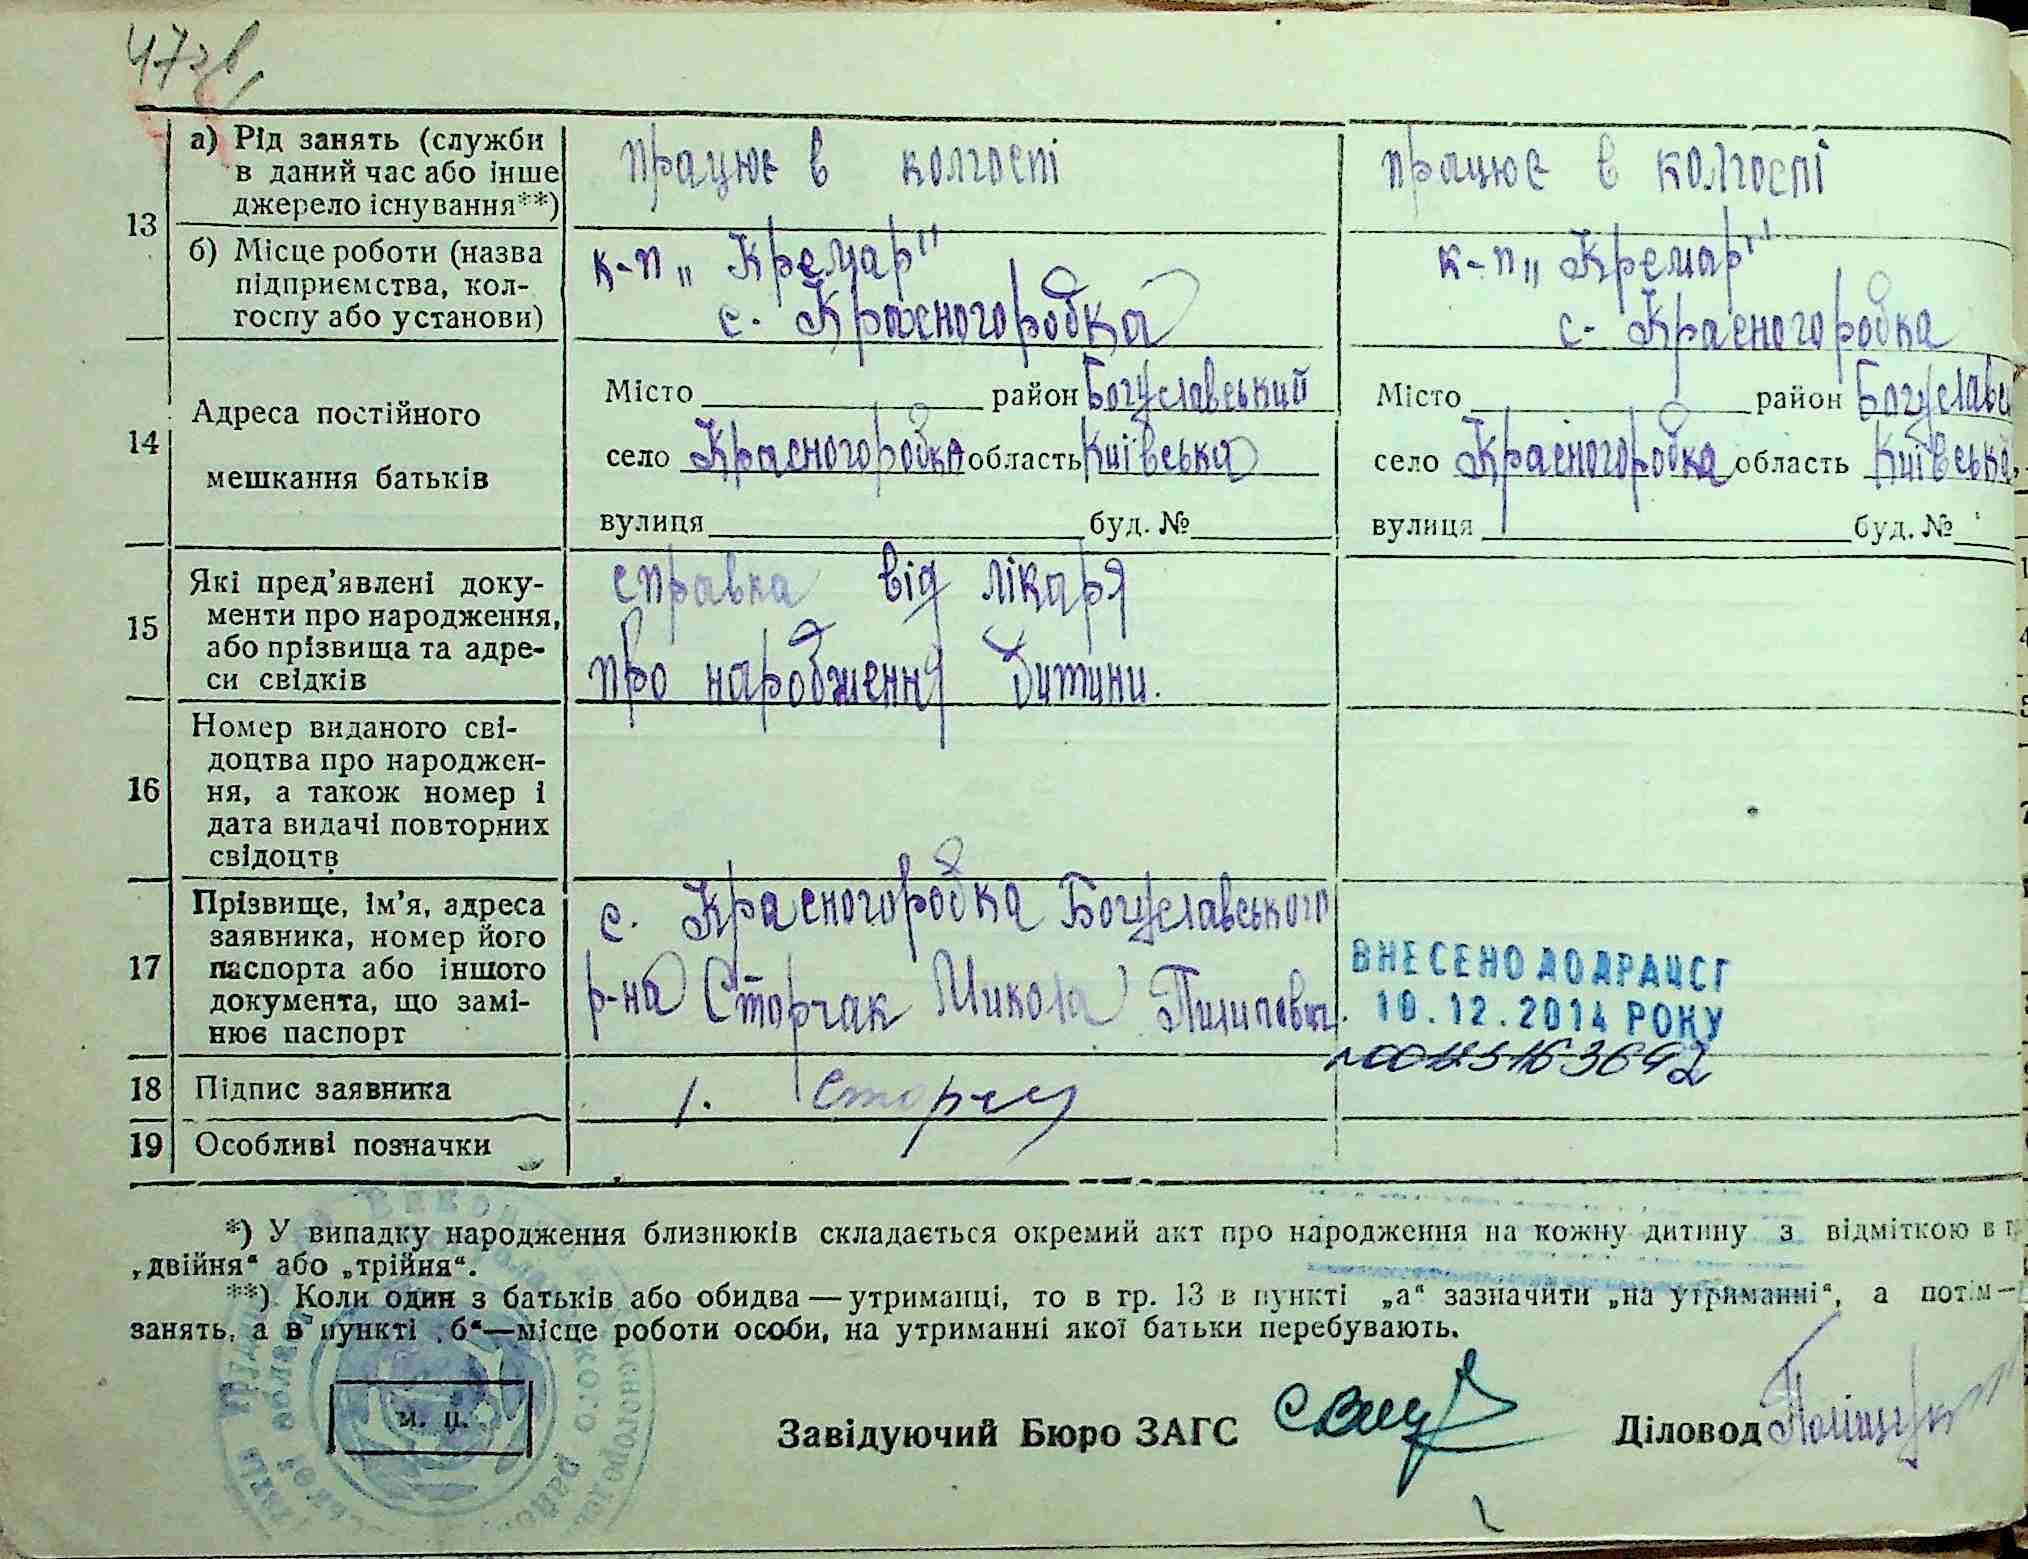 47зв
а) Рід занять (служби працює в колгоспі працює в колгоспі
в даний час або інше
джерело існування**)
13
б) Місце роботи (назва к-п „Кремар" к-п „Кремар"
підприємства, кол-
госпу або установи) с. Красногородка с. Красногородка
14 Адреса постійного Місто район Богуславський Місто район Богуславс
мешкання батьків село Красногородка область Київська село Красногородка область Київська
вулиця буд. № вулиця буд. №
Які пред'явлені доку- справка від лікаря
15 менти про народження,
або прізвища та адре- про народження дитини.
си свідків
Номер виданого сві-
доцтва про народжен-
16 ня, а також номер і
дата видачі повторних
свідоцтв
Прізвище, ім'я, адреса с. Красногородка Богуславського
заявника, номер його
17 паспорта або іншого р-на Сторчак Микола Пилипович. ВНЕСЕНО ДО ДРАЦСГ
документа, що замі- 10.12.2014 РОКУ
нює паспорт №00125163692
18 Підпис заявника 1. Сторч
19 Особливі позначки
*) У випадку народження близнюків складається окремий акт про народження на кожну дитину з відміткою в г
„двійня“ або „трійня“.
**) Коли один з батьків або обидва — утриманці, то в гр. 13 в пункті „а“ зазначити „на утриманні“, а потім —
занять, а в пункті „б“—місце роботи особи, на утриманні якої батьки перебувають.
м. п.
Завідуючий Бюро ЗАГС Діловод Поліщук